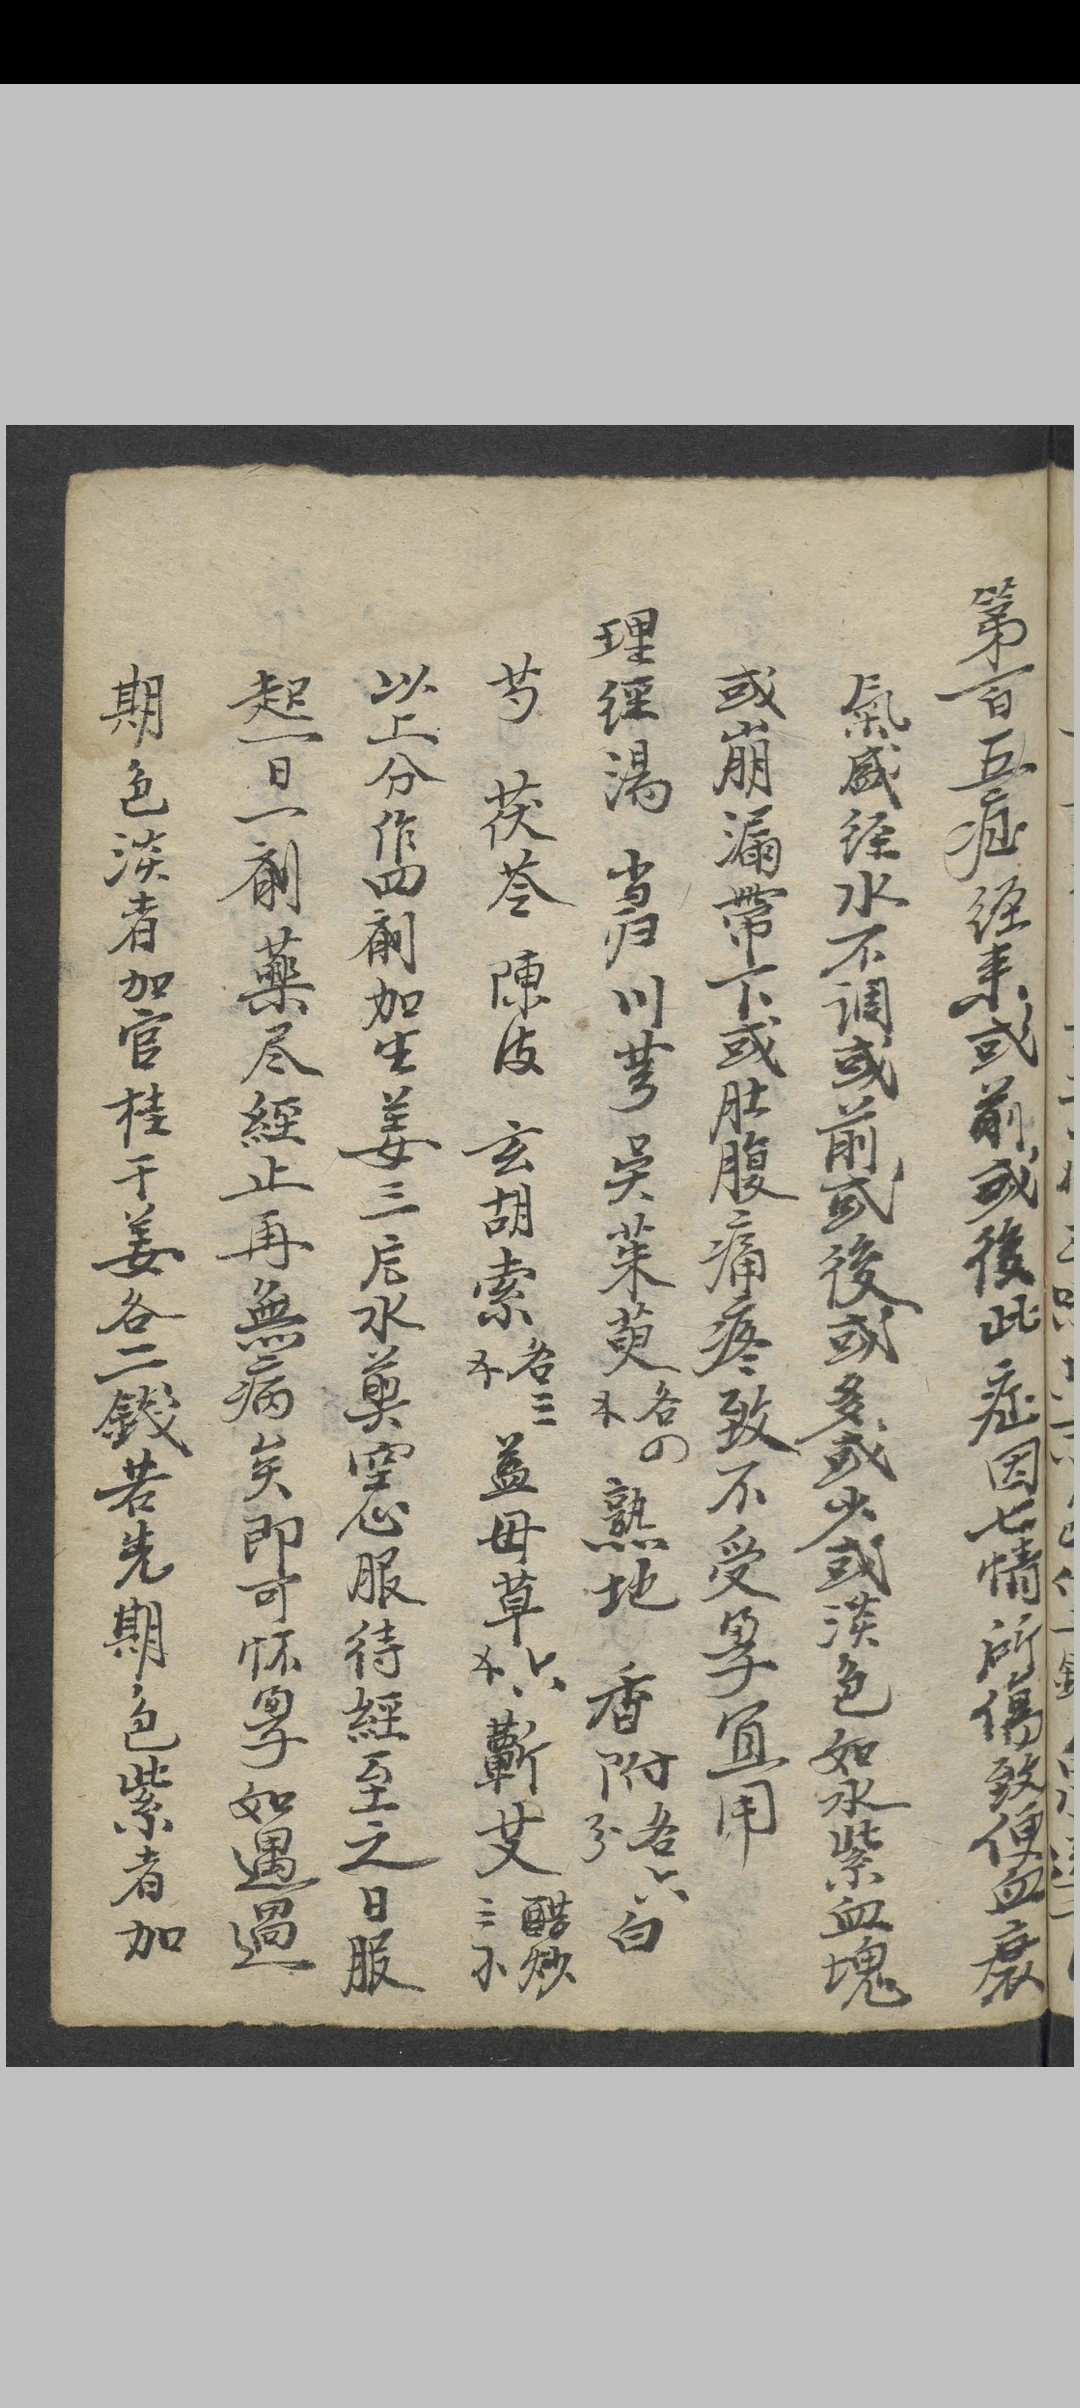 第一百五症經来或前或後此症因七情所傷致使血衰
氣盛経水不调或前或後或多或少或淡色如水紫血塊
或崩漏帶下或肚腹痛疼致不受孕宜用
理經湯 当归川芎吳茱萸各四 熟地 香附各六分白
芍 茯苓 陳皮 玄胡索各三 益母草六 蘄艾醋炒二
以上分作四劑加生姜三片水煎空心服待經至之日服
起一日一劑藥尽經止再無病矣即可怀孕如遇過
期色淡者加官桂干姜各二錢若先期色紫者加